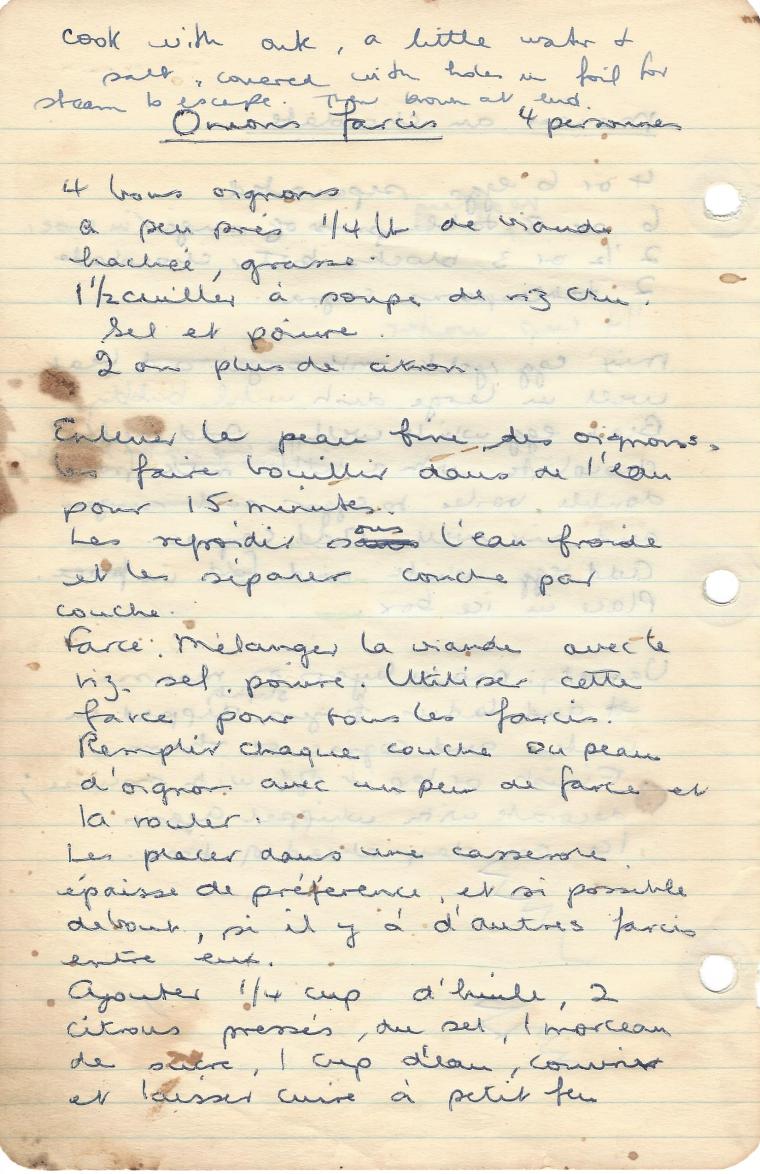 cook with out, a little water &
salt, covered with holes in foil for
steam to escape. Then brown at end.
Onions farcis 4 personnes
4 bons oignons
a peu près 1/4 lb de viande
hachée, grasse.
1 1/2 cuiller à soupe de riz cru.
Sel et poivre.
2 ou plus de citron.
Enlever la peau fine, des oignons,
les faire bouillir dans de l'eau
pour 15 minutes.
Les refroidir sous l'eau froide
et les séparer couche par
couche.
Farce: Mélanger la viande avec le
riz, sel, poivre. Utiliser cette
farce pour tous les farcis.
Remplir chaque couche ou peau
d'oignon avec un peu de farce et
la rouler.
Les placer dans une casserole
épaisse de préférence, et si possible
debout, si il y à d'autres farcis
entre eux.
Ajouter 1/4 cup d'huile, 2
citrons pressés, du sel, 1 morceau
de sucre, 1 cup d'eau, couvrir
et laisser cuire à petit feu